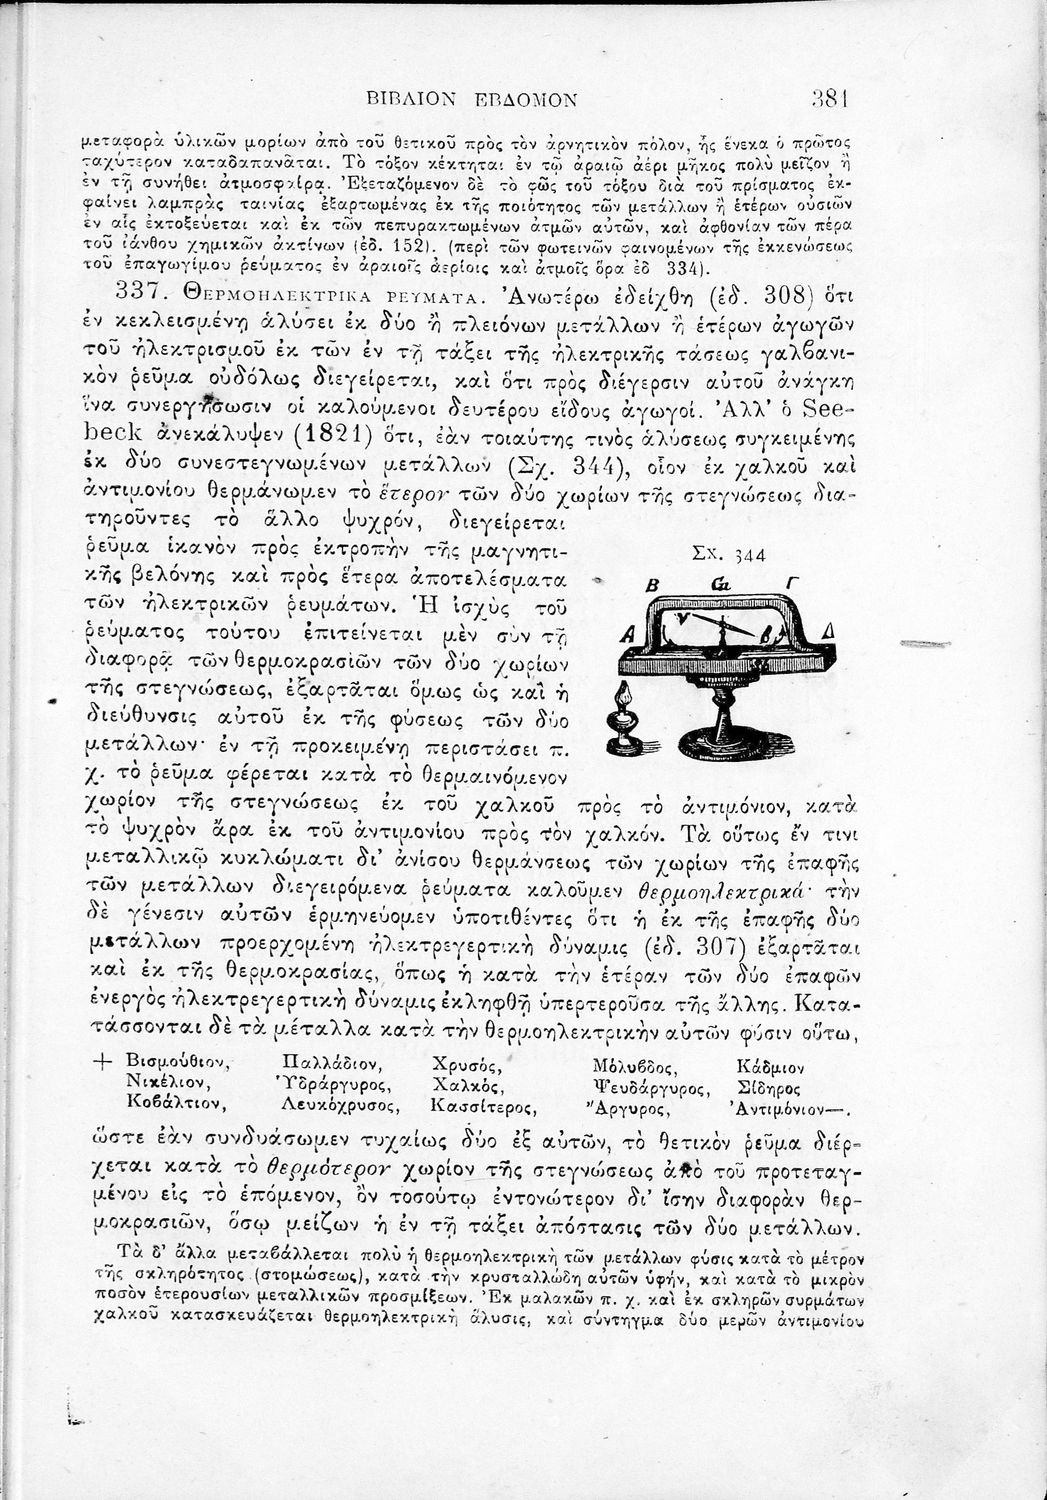 ΒΙΒΛΙΟΝ ΕΒΔΟΜΟΝ 381
μεταφορὰ ὑλικῶν μορίων ἀπὸ τοῦ θετικοῦ πρὸς τὸν ἀρνητικὸν πόλον, ἧς ἕνεκα ὁ πρῶτος
ταχύτερον καταδαπανᾶται. Τὸ τόξον κέκτηται ἐν τῷ ἀραιῷ ἀέρι μῆκος πολὺ μεῖζον ἢ
ἐν τῇ συνήθει ἀτμοσφαίρᾳ. Ἐξεταζόμενον δὲ τὸ φῶς τοῦ τόξου διὰ τοῦ πρίσματος ἐκ-
φαίνει λαμπρὰς ταινίας ἐξαρτωμένας ἐκ τῆς ποιότητος τῶν μετάλλων ἢ ἑτέρων οὐσιῶν
ἐν αἷς ἐκτοξεύεται καὶ ἐκ τῶν πεπυρακτωμένων ἀτμῶν αὐτῶν, καὶ ἀφθονίαν τῶν πέρα
τοῦ ἰάνθου χημικῶν ἀκτίνων (ἐδ. 152). (περὶ τῶν φωτεινῶν φαινομένων τῆς ἐκκενώσεως
τοῦ ἐπαγωγίμου ῥεύματος ἐν ἀραιοῖς ἀερίοις καὶ ἀτμοῖς ὅρα ἐδ 334).
337. ΘΕΡΜΟΗΛΕΚΤΡΙΚΑ ΡΕΥΜΑΤΑ. Ἀνωτέρω ἐδείχθη (ἐδ. 308) ὅτι
ἐν κεκλεισμένῃ ἁλύσει ἐκ δύο ἢ πλειόνων μετάλλων ἢ ἑτέρων ἀγωγῶν
τοῦ ἠλεκτρισμοῦ ἐκ τῶν ἐν τῇ τάξει τῆς ἠλεκτρικῆς τάσεως γαλβανι-
κὸν ῥεῦμα οὐδόλως διεγείρεται, καὶ ὅτι πρὸς διέγερσιν αὐτοῦ ἀνάγκη
ἵνα συνεργήσωσιν οἱ καλούμενοι δευτέρου εἴδους ἀγωγοί. Ἀλλ' ὁ See-
beck ἀνεκάλυψεν (1821) ὅτι, ἐὰν τοιαύτης τινὸς ἁλύσεως συγκειμένης
ἐκ δύο συνεστεγνωμένων μετάλλων (Σχ. 344), οἷον ἐκ χαλκοῦ καὶ
ἀντιμονίου θερμάνωμεν τὸ ἕτερον τῶν δύο χωρίων τῆς στεγνώσεως δια-
τηροῦντες τὸ ἄλλο ψυχρόν, διεγείρεται
ῥεῦμα ἱκανὸν πρὸς ἐκτροπὴν τῆς μαγνητι-
κῆς βελόνης καὶ πρὸς ἕτερα ἀποτελέσματα
τῶν ἠλεκτρικῶν ῥευμάτων. Ἡ ἰσχὺς τοῦ
ῥεύματος τούτου ἐπιτείνεται μὲν σὺν τῇ
διαφορᾷ τῶν θερμοκρασιῶν τῶν δύο χωρίων
τῆς στεγνώσεως, ἐξαρτᾶται ὅμως ὡς καὶ ἡ
διεύθυνσις αὐτοῦ ἐκ τῆς φύσεως τῶν δύο
μετάλλων· ἐν τῇ προκειμένῃ περιστάσει π.
χ. τὸ ῥεῦμα φέρεται κατὰ τὸ θερμαινόμενον
Σχ. 344
Β Ca Γ
Α ν β Δ
χωρίον τῆς στεγνώσεως ἐκ τοῦ χαλκοῦ πρὸς τὸ ἀντιμόνιον, κατὰ
τὸ ψυχρὸν ἄρα ἐκ τοῦ ἀντιμονίου πρὸς τὸν χαλκόν. Τὰ οὕτως ἔν τινι
μεταλλικῷ κυκλώματι δι' ἀνίσου θερμάνσεως τῶν χωρίων τῆς ἐπαφῆς
τῶν μετάλλων διεγειρόμενα ῥεύματα καλοῦμεν θερμοηλεκτρικά· τὴν
δὲ γένεσιν αὐτῶν ἑρμηνεύομεν ὑποτιθέντες ὅτι ἡ ἐκ τῆς ἐπαφῆς δύο
μετάλλων προερχομένη ἠλεκτρεγερτικὴ δύναμις (ἐδ. 307) ἐξαρτᾶται
καὶ ἐκ τῆς θερμοκρασίας, ὅπως ἡ κατὰ τὴν ἑτέραν τῶν δύο ἐπαφῶν
ἐνεργὸς ἠλεκτρεγερτικὴ δύναμις ἐκληφθῇ ὑπερτεροῦσα τῆς ἄλλης. Κατα-
τάσσονται δὲ τὰ μέταλλα κατὰ τὴν θερμοηλεκτρικὴν αὐτῶν φύσιν οὕτω,
+ Βισμούθιον, Παλλάδιον, Χρυσός, Μόλυβδος, Κάδμιον
Νικέλιον, Ὑδράργυρος, Χαλκός, Ψευδάργυρος, Σίδηρος
Κοβάλτιον, Λευκόχρυσος, Κασσίτερος, Ἄργυρος, Ἀντιμόνιον—.
ὥστε ἐὰν συνδυάσωμεν τυχαίως δύο ἐξ αὐτῶν, τὸ θετικὸν ῥεῦμα διέρ-
χεται κατὰ τὸ θερμότερον χωρίον τῆς στεγνώσεως ἀπὸ τοῦ προτεταγ-
μένου εἰς τὸ ἑπόμενον, ὂν τοσούτῳ ἐντονώτερον δι' ἴσην διαφορὰν θερ-
μοκρασιῶν, ὅσῳ μείζων ἡ ἐν τῇ τάξει ἀπόστασις τῶν δύο μετάλλων.
Τὰ δ' ἄλλα μεταβάλλεται πολὺ ἡ θερμοηλεκτρικὴ τῶν μετάλλων φύσις κατὰ τὸ μέτρον
τῆς σκληρότητος (στομώσεως), κατὰ τὴν κρυσταλλώδη αὐτῶν ὑφήν, καὶ κατὰ τὸ μικρὸν
ποσὸν ἑτερουσίων μεταλλικῶν προσμίξεων. Ἐκ μαλακῶν π. χ. καὶ ἐκ σκληρῶν συρμάτων
χαλκοῦ κατασκευάζεται θερμοηλεκτρικὴ ἅλυσις, καὶ σύντηγμα δύο μερῶν ἀντιμονίου